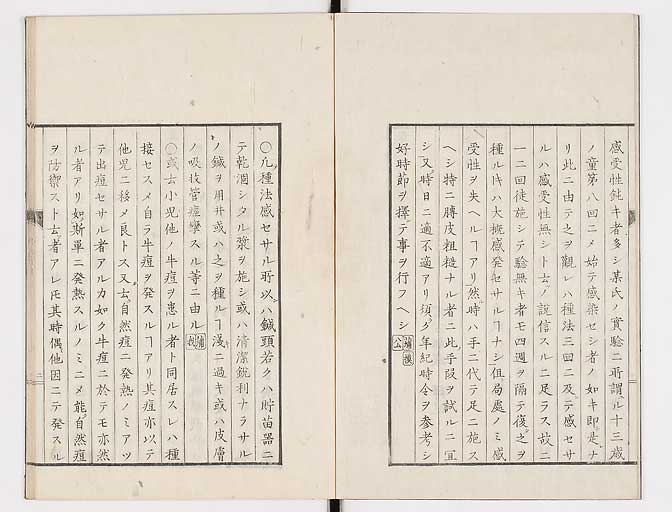 感受性鈍キ者多シ某氏ノ實驗ニ所謂ル十三歳
ノ童第八回ニメ始テ感染セシ者ノ如キ即是ナ
リ此ニ由テ之ヲ觀レハ種法三回ニ及テ感セサ
ルハ感受性無シト云フ説信スルニ足ラス故ニ
一二回徒施シテ驗無キ者モ四週ヲ隔テ復之ヲ
種ル片ハ大概感発セサルヿナシ但局處ノミ感
受性ヲ失ヘルヿアリ然時ハ手ニ代テ足ニ施ス
ヘシ特ニ膊皮粗糙ナル者ニ此手段ヲ試ルニ宜
シ又時日ニ適不適アリ須ク年紀時令ヲ参考シ
好時節ヲ擇テ事ヲ行フヘシ
〇凡種法感セサル所以ハ鍼頭若クハ貯苗器ニ
テ乾涸シタル漿ヲ施シ或ハ清潔鋭利ナラサル
ノ鍼ヲ用井或ハ之ヲ種ルヿ淺ニ過キ或ハ皮膚
ノ吸收管痙攣スル等ニ由ル
〇或云小児他ノ牛痘ヲ患ル者ト同居スレハ種
接セスメ自ラ牛痘ヲ発スルヿアリ其痘亦以テ
他児ニ移メ良トス又云自然痘ニ発熱ノミアツ
テ出痘セサル者アルカ如ク牛痘ニ於テモ亦然
ル者アリ如斯單ニ発熱スルノミニメ能自然痘
ヲ防禦スト云者アレ圧其時偶他因ニテ発スル